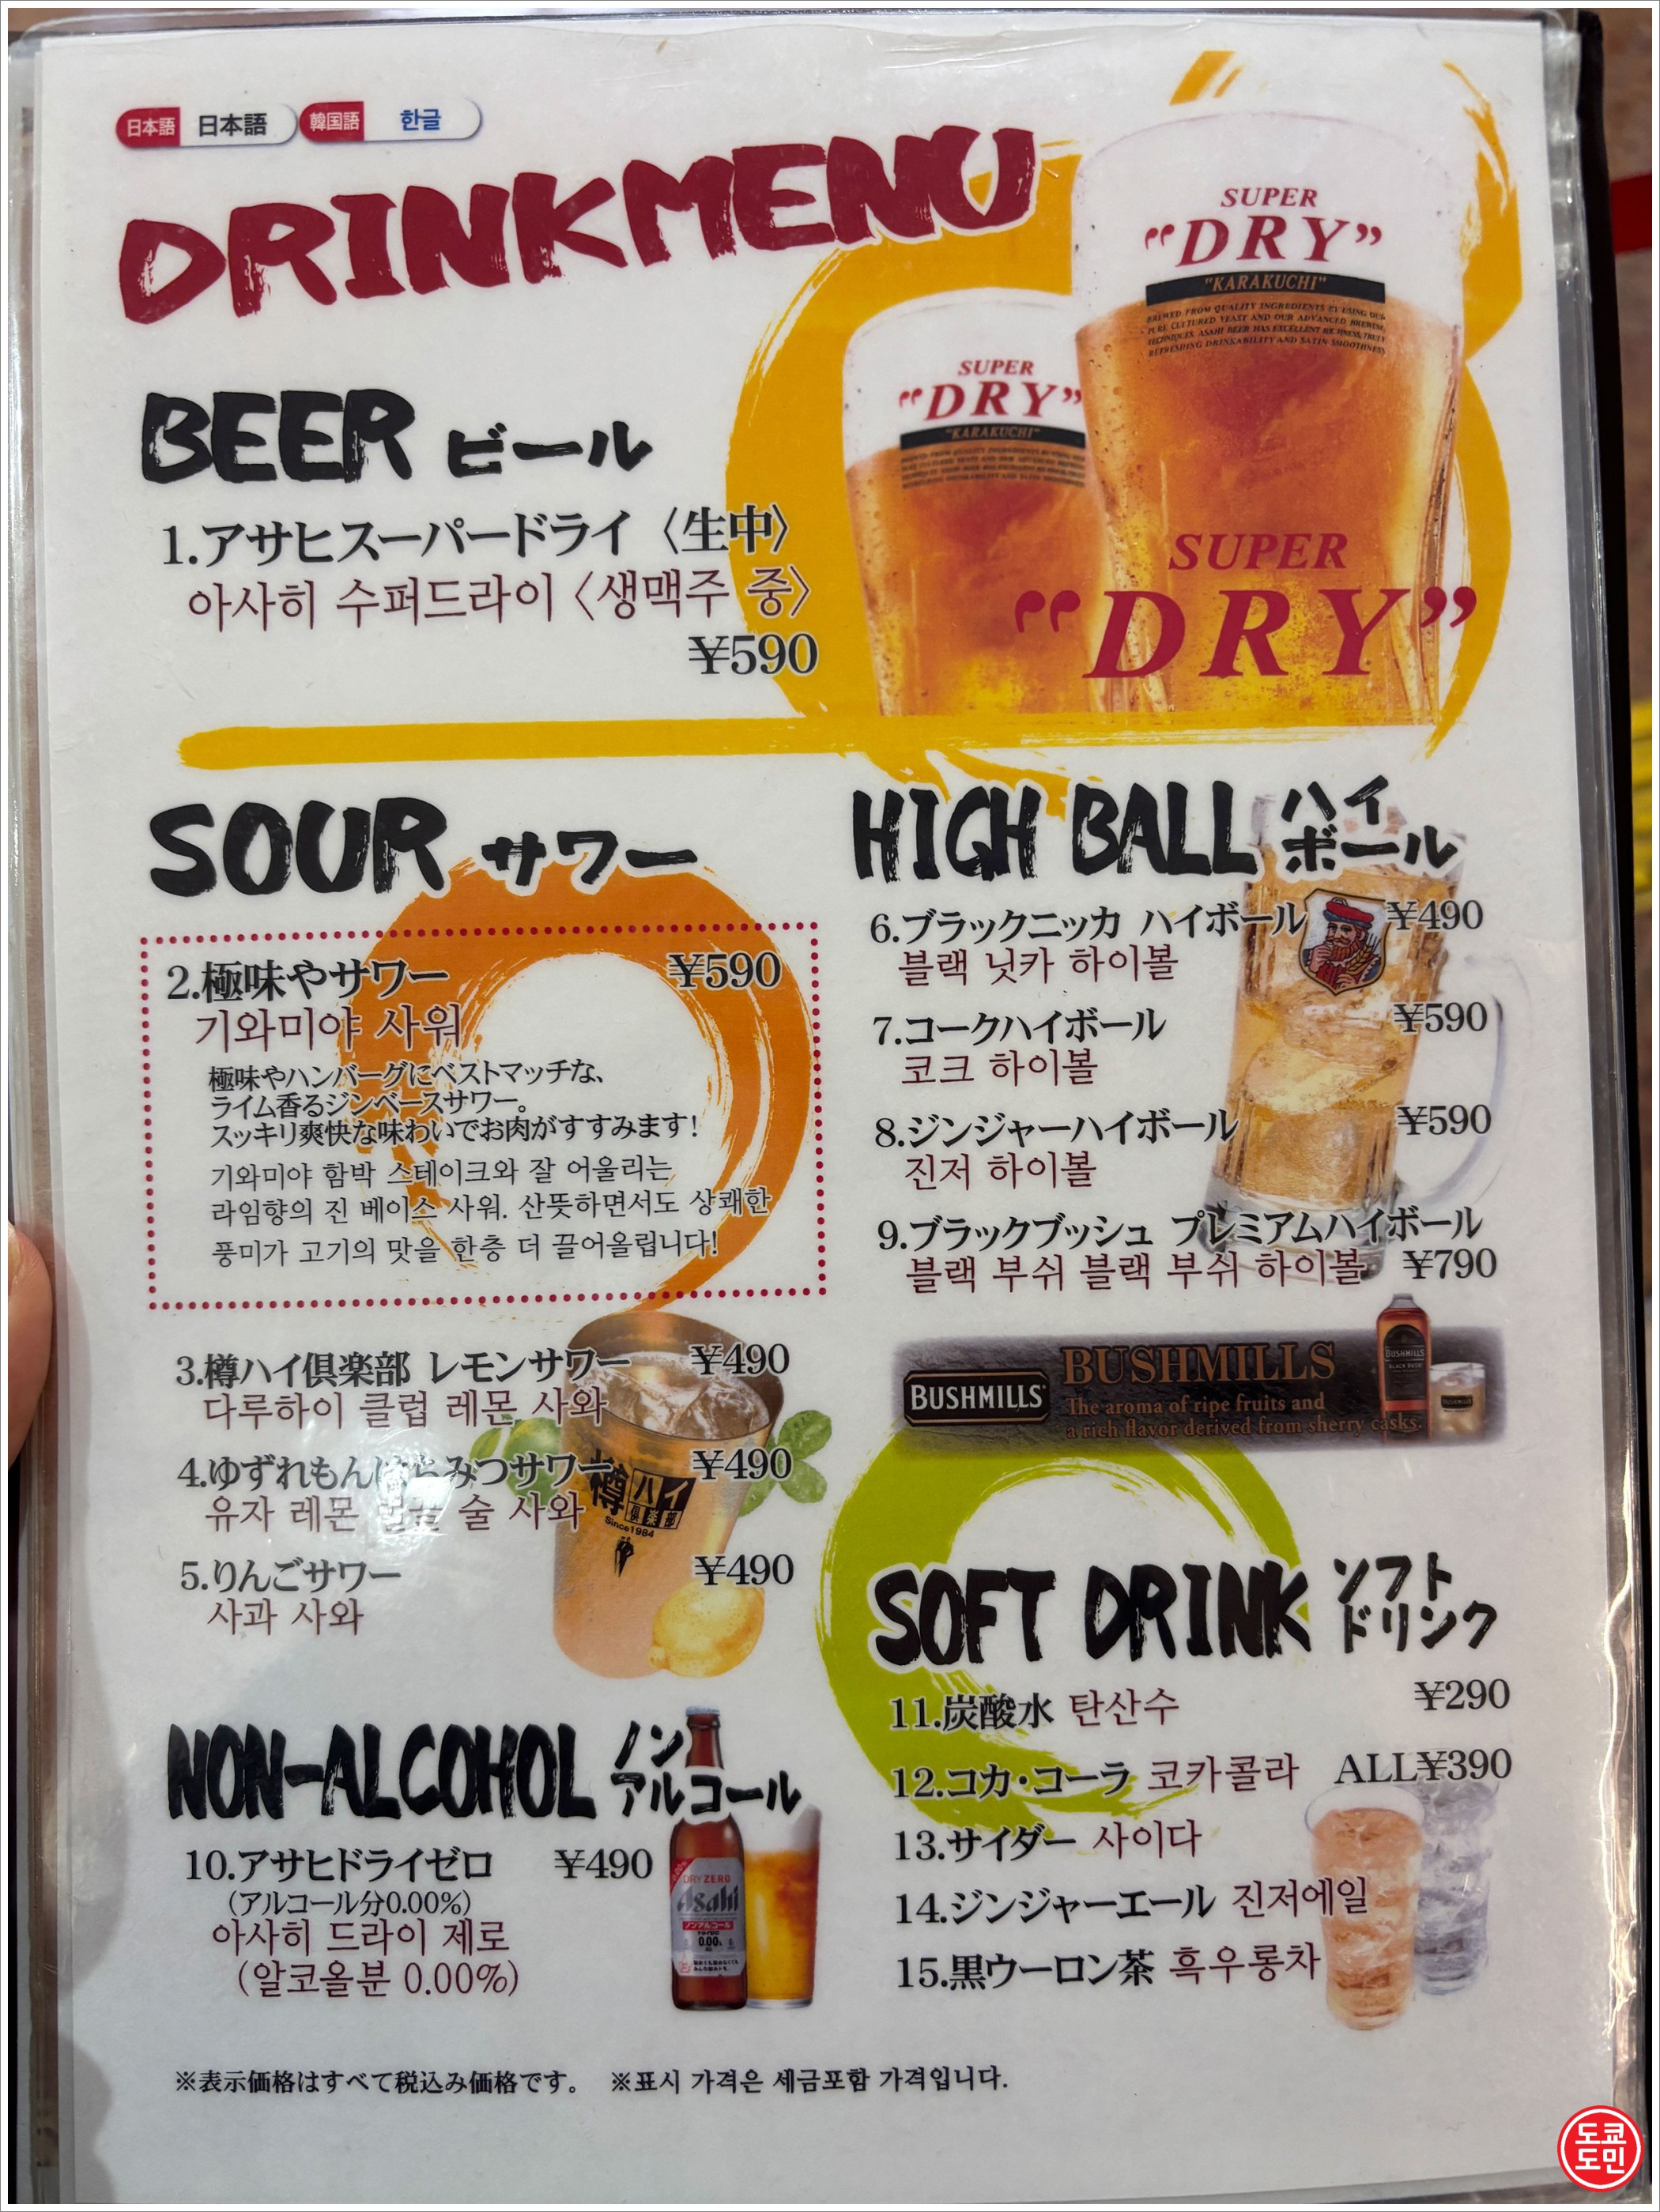 日本語 日本語 韓国語 한글
DRINKMENU
SUPER
"DRY"
"KARAKUCHI"
BREWED FROM QUALITY INGREDIENTS BY USING OUR
PURE CULTURED YEAST AND OUR ADVANCED BREWING
TECHNIQUES. ASAHI BEER HAS EXCELLENT RICHNESS, TRULY
REFRESHING DRINKABILITY AND SATIN SMOOTHNESS
SUPER
"DRY"
"KARAKUCHI"
SUPER
"DRY"
BEER ビール
1.アサヒスーパードライ〈生中〉
아사히 수퍼드라이〈생맥주 중〉
¥590
SOUR サワー
2.極味やサワー ¥590
기와미야 사워
極味やハンバーグにベストマッチな、
ライム香るジンベースサワー。
スッキリ爽快な味わいでお肉がすすみます!
기와미야 함박 스테이크와 잘 어울리는
라임향의 진 베이스 사워. 산뜻하면서도 상쾌한
풍미가 고기의 맛을 한층 더 끌어올립니다!
3.樽ハイ倶楽部 レモンサワー ¥490
다루하이 클럽 레몬 사와
4.ゆずれもんはちみつサワー ¥490
유자 레몬 술 사와
5.りんごサワー ¥490
사과 사와
樽ハイ
倶楽部
Since1984
NON-ALCOHOL ノン
アルコール
10.アサヒドライゼロ ¥490
(アルコール分0.00%)
아사히 드라이 제로
(알코올분 0.00%)
DRY ZERO
Asahi
ノンアルコール
0.00%
HIGH BALL ハイ
ボール
6.ブラックニッカ ハイボール ¥490
블랙 닛카 하이볼
7.コークハイボール ¥590
코크 하이볼
8.ジンジャーハイボール ¥590
진저 하이볼
9.ブラックブッシュ プレミアムハイボール
블랙 부쉬 블랙 부쉬 하이볼 ¥790
BUSHMILLS
BUSHMILLS
The aroma of ripe fruits and
a rich flavor derived from sherry casks.
BUSHMILLS
SOFT DRINK ソフト
ドリンク
11.炭酸水 탄산수 ¥290
12.コカ・コーラ 코카콜라 ALL¥390
13.サイダー 사이다
14.ジンジャーエール 진저에일
15.黒ウーロン茶 흑우롱차
※表示価格はすべて税込み価格です。 ※표시 가격은 세금포함 가격입니다.
도쿄
도민